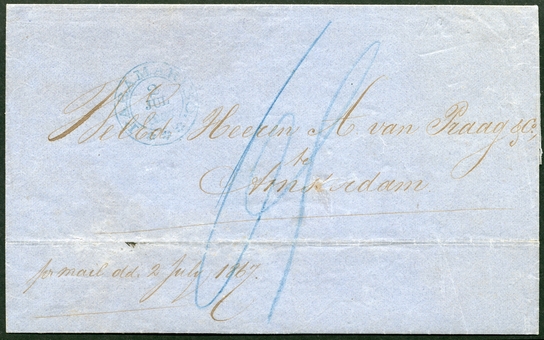 2
JUL
WelEd. Heeren A van Praag & Co,
te
Amsterdam
per mail dd. 2 July 1867.